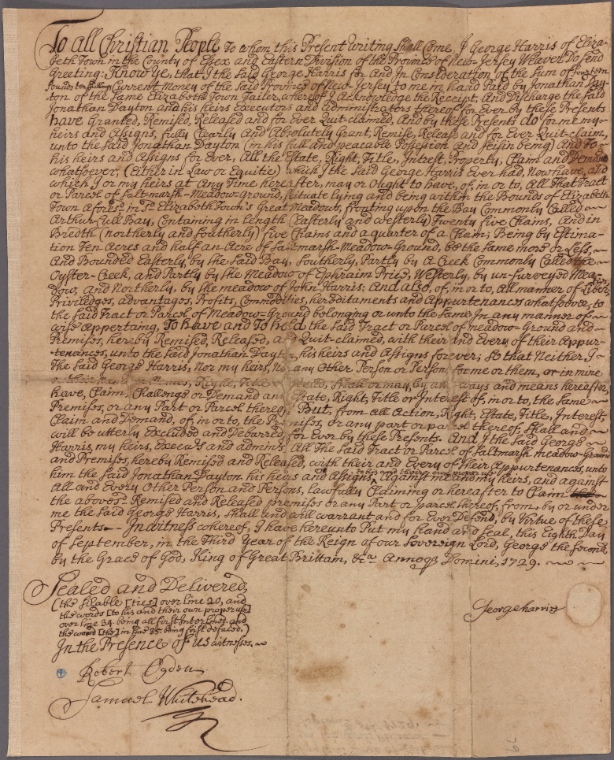 To All Christian People To whom this Present writing shall Come, I George Harris of Eliza-
beth Town in the County of Essex and Eastern Division of the Province of New-Jersey Weaver Send
Greeting: Know ye, that I the said George Harris for and In Consideration of the Sum of
Current Money of the said Province of New Jersey to me in hand Paid by Jonathan Day-
ton of the same Elizabeth Town the Receipt
Jonathan Dayton and his heirs Executors and administrators thereof for Ever by these Presents
have Granted, Remised, Released and for Ever Quit-claimed, and by these Presents do for me my
heirs and Assigns, fully Clearly and Absolutely Grant, Remise, Release and for Ever Quit-claim
unto the said Jonathan Dayton (in his full and peaceable Possession and seisin being) and To
his heirs and Assigns for Ever, All the Estate, Right, Title, Interest, Property, Claim and Demand
whatsoever, (Either in Law or Equitie) which I the said George Harris Ever had Now have, and
which I or my heirs at Any Time hereafter, may or Ought to have, of, in or to, All That Tract
or Parcel of saltmarsh-Meadow-Ground, situate lying and being within the Bounds of Elizabeth
Town aforesd. in sd. Elizabeth Town's Great Meadows, fronting upon the Bay Commonly Called
Arthur-Cull Bay, Containing in length (Easterly and westerly) Twenty five Chains, And in
Bredth (northerly and southerly) five Chains and a quarter of a Chain; Being by Estima-
tion Ten Acres and half an Acre of saltmarsh-Meadow-Ground, be the same more or Less
And Bounded Easterly by the said Bay, Southerly, Partly by A Creek Commonly Called
Oyster-Creek, and Partly by the Meadow of Ephraim Price, Westerly by un-surveyed Mea-
dow, and Northerly by the meadow of John Harris: And also, of, in or to, All manner of
Priviledges, advantages, Profits, Commodities, hereditaments and Appurtenances whatsoever, to
the said Tract or Parcel of Meadow-Ground belonging or unto the same In any manner of
wise Appertaing, To have and To hold the said Tract or Parcel of meadow-Ground and
Premises, hereby Remised, Released, and Quit-claimed, with their and Every of their Appur-
tenances, unto the said Jonathan Dayton, his heirs and Assigns forever, So that Neither I
the said George Harris, Nor my heirs, Nor any Other Person or Persons for me or them, or in mine
or their may by any ways and means hereafter,
have, Claim, Challenge or Demand any Estate, Right, Title or Interest of, in or to, the same
Premises, or any Part or Parcel thereof. But, from all Action, Right, Estate, Title, Interest,
Claim and Demand, of in or to, the Premises, or any part or parcel thereof, shall and
will be utterly Excluded and Debarred for Ever by these Presents. And I the said George
Harris, my heirs, Execurs and admins, All the said Tract or Parcel of saltmarsh meadow-Ground
and Premises, hereby Remised and Released, with their and Every of their Appurtenances, unto
him the said Jonathan Dayton his heirs and Assigns, Against me and my heirs, and against
All and Every Other Person and Persons, lawfully Claiming or hereafter to Claim
the abovesd. Remised and Released Premises or any Part or parcel thereof, from, by or under
me the said George Harris, shall and will warrant and for Ever Defend, by Virtue of these
Presents. In witness whereof, I have hereunto Put my hand and seal, this Eighth Day
of September, in the Third Year of the Reign of our Sovereign Lord, George the second,
by the Grace of God, King of Great Brittain, &ca. Annoq. Domini, 1729.
Sealed and Delivered
over line 20, and
the words [to his and their own proper use]
over line 24. being all first Enterlined, and
the word
In the Presence of us witnesses.
George harriss
Robert Ogden
Samuel Whitehead.